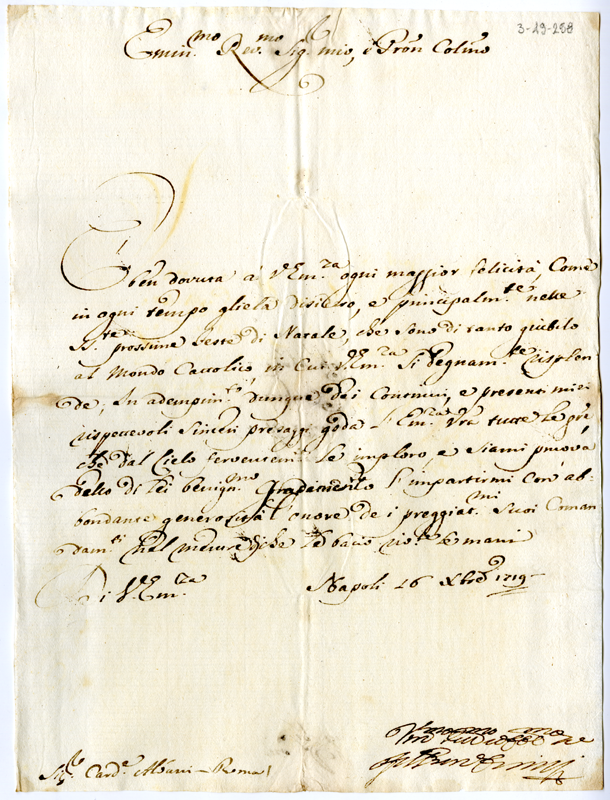 3-19-258
Emin.mo Rev.mo Sig. mio, e Pron Colmo
È ben dovuta a V.Em.za ogni maggior felicità, Come
in ogni tempo gliela disidero, e principalm.te nelle
SS.te prossime feste di Natale, che sono di tanto giubilo
al Mondo Cattolico, in Cui V.Em.za Si degnam.te risplen
de, In adempim.to dunque dei Continui, e presenti miei
rispettevoli Sinceri presaggi goda l'Em.za Vra tutte le gra
che dal Cielo ferventem.te le imploro, e Siami pruova
dello di Lei benign.mo gradimento l'impartirmi con ab-
bondante generosità l'onore de i preggiat.mi Suoi Coman
dam.ti nel mentre che le bacio le mani
Di V.Em.za Napoli 16 Xbre 1719
Sig.r Card.e Albani - Roma